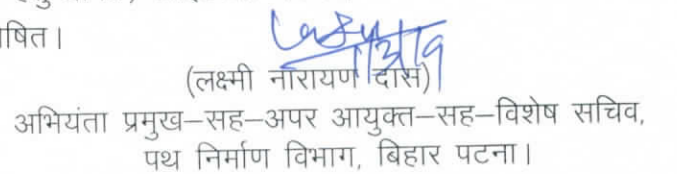 षित।
(लक्ष्मी नारायण दास)
अभियंता प्रमुख–सह–अपर आयुक्त–सह–विशेष सचिव,
पथ निर्माण विभाग, बिहार पटना।